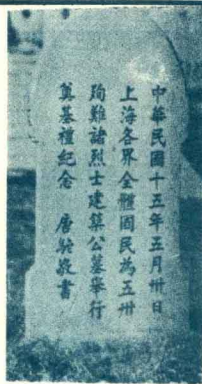 中華民國十五年五月卅日
上海各界全體國民為五卅
殉難諸烈士建築公墓舉行
奠基禮紀念　唐㪇敬書